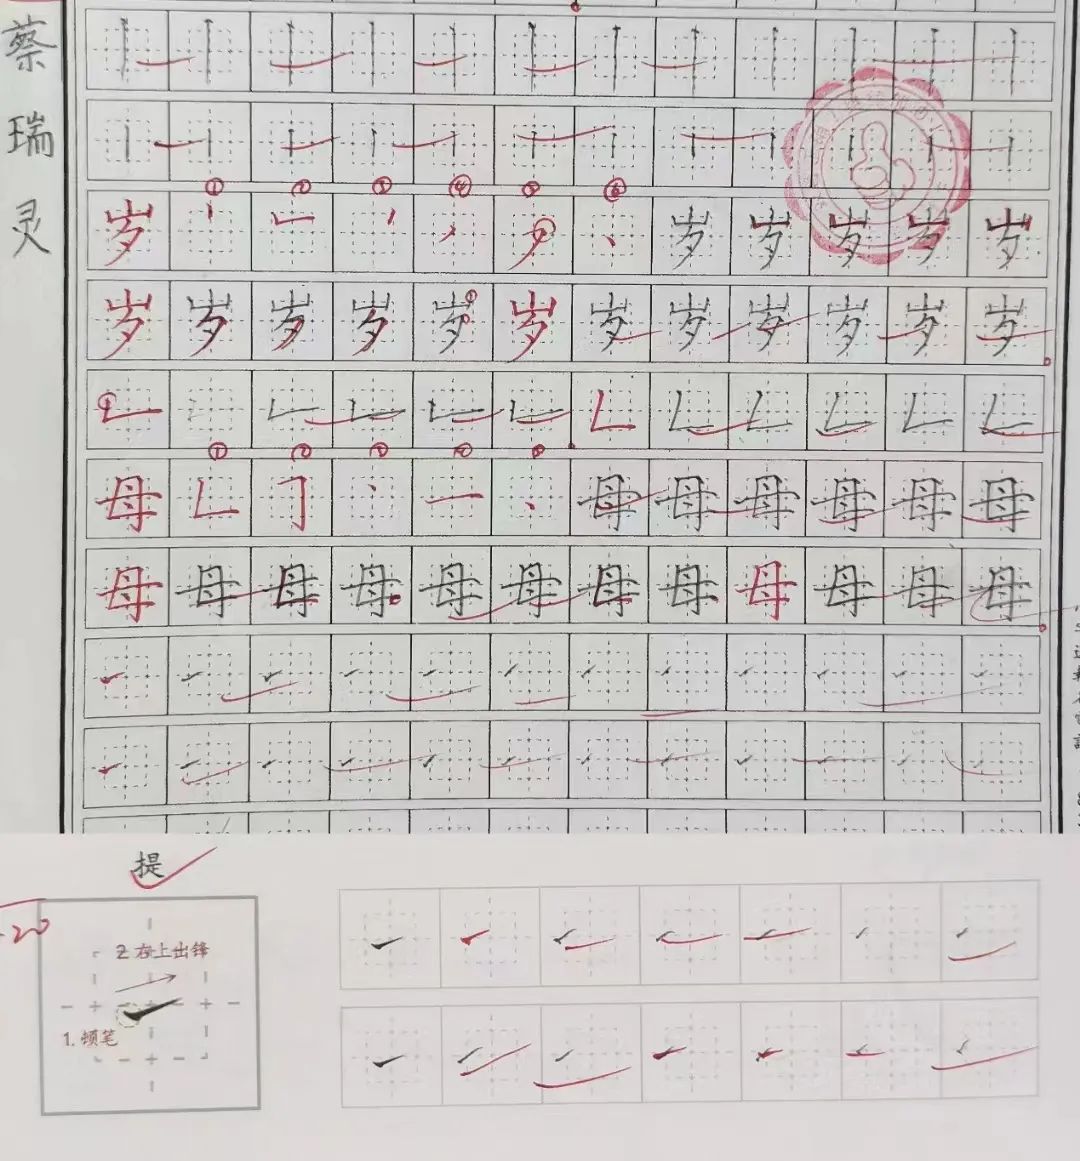 蔡瑞灵
① ② ③ ④ ⑤ ⑥
岁 岁 岁 岁 岁 岁
岁 岁 岁 岁 岁 岁 岁 岁 岁 岁 岁 岁
① ② ③ ④ ⑤
母 母 母 母 母 母 母
母 母 母 母 母 母 母 母 母 母 母 母
提
20
2.右上出锋
1.顿笔